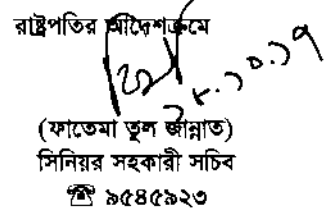 রাষ্ট্রপতির আদেশক্রমে
২৮.১০.১৭
(ফাতেমা তুল জান্নাত)
সিনিয়র সহকারী সচিব
☎ ৯৫৪৫৯২৩